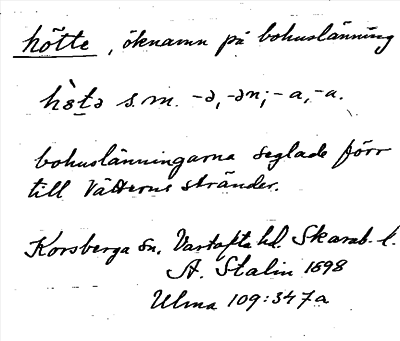 hötte, öknamn på bohuslänning
hö̀tə s.m. -ə, -ən; -a, -a.
bohuslänningarna seglade förr
till Vätterns stränder.
Korsberga sn, Vartofta hd. Skarab. l.
A. Stalin 1698
Ulma 109:347a